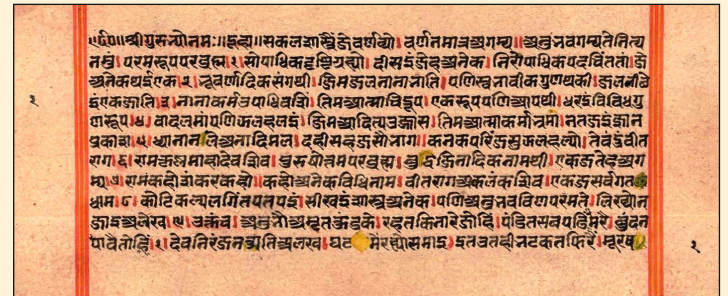 ॥र्द०॥ श्रीगुरुभ्योनमः॥ दूहा॥ सकल शास्त्रैं जे वर्णव्यो। वर्णतमात्र अगम्य॥ अनुभव गम्य ते नित्य
नमुं। परमरूप परब्रह्म।१। सोपाधिक दृष्टि ग्रह्यो। दीसइं जेह अनेक। निरोपाधिक पद चिंततां। जे
अनेक थई एक।२। भूवर्णादिक संगथी। जिम जल नाना भाति। पणि स्वभावीक गुण थकी। जल नीबे
इं एकजाति।३। नाना कर्मउपाधिवशि। तिम आत्मा विडूप। एकरूप पणि आपथी। धरइं विविध गु
ण रूप।४। वादलमां पणि झलहलइं। जिम आदित्य उजास। तिम आत्मा कर्मावृत्तमां। न तजइं ज्ञान
प्रकाश।५। ध्यानानलि अनादि मल। दही सहज सौभाग। कनक परि जस झलहल्यो। ते वंदुं वीत
राग।६। राम कहुं माहादेव शिव। पुरुषोत्तम परब्रह्म। बुद्ध जिनादिक नामथी। एकज तेह अग
म्य।७। राम कहो शंकर कहो। कहो अनेक विधि नाम। वीतराग अकलंक शिव। एकज सर्वगत
धाम।८। कोटिकल्प लगिं तप तपइं। सीखइं शास्त्र अनेक। पणि अनुभव विण परमते। लिख्यो न
जाइ अलेख।९। उक्तंच। अनुभौ अमृत कुंडके। रहत किनारे जोहिं। पंडित यव पढि मरे। बुंद न
पावै तोहिं।१। देव निरंजन अति अलख। घट मैं रह्यो समाइ। इत उतही भटकत फिरैं। मूरख
१
१